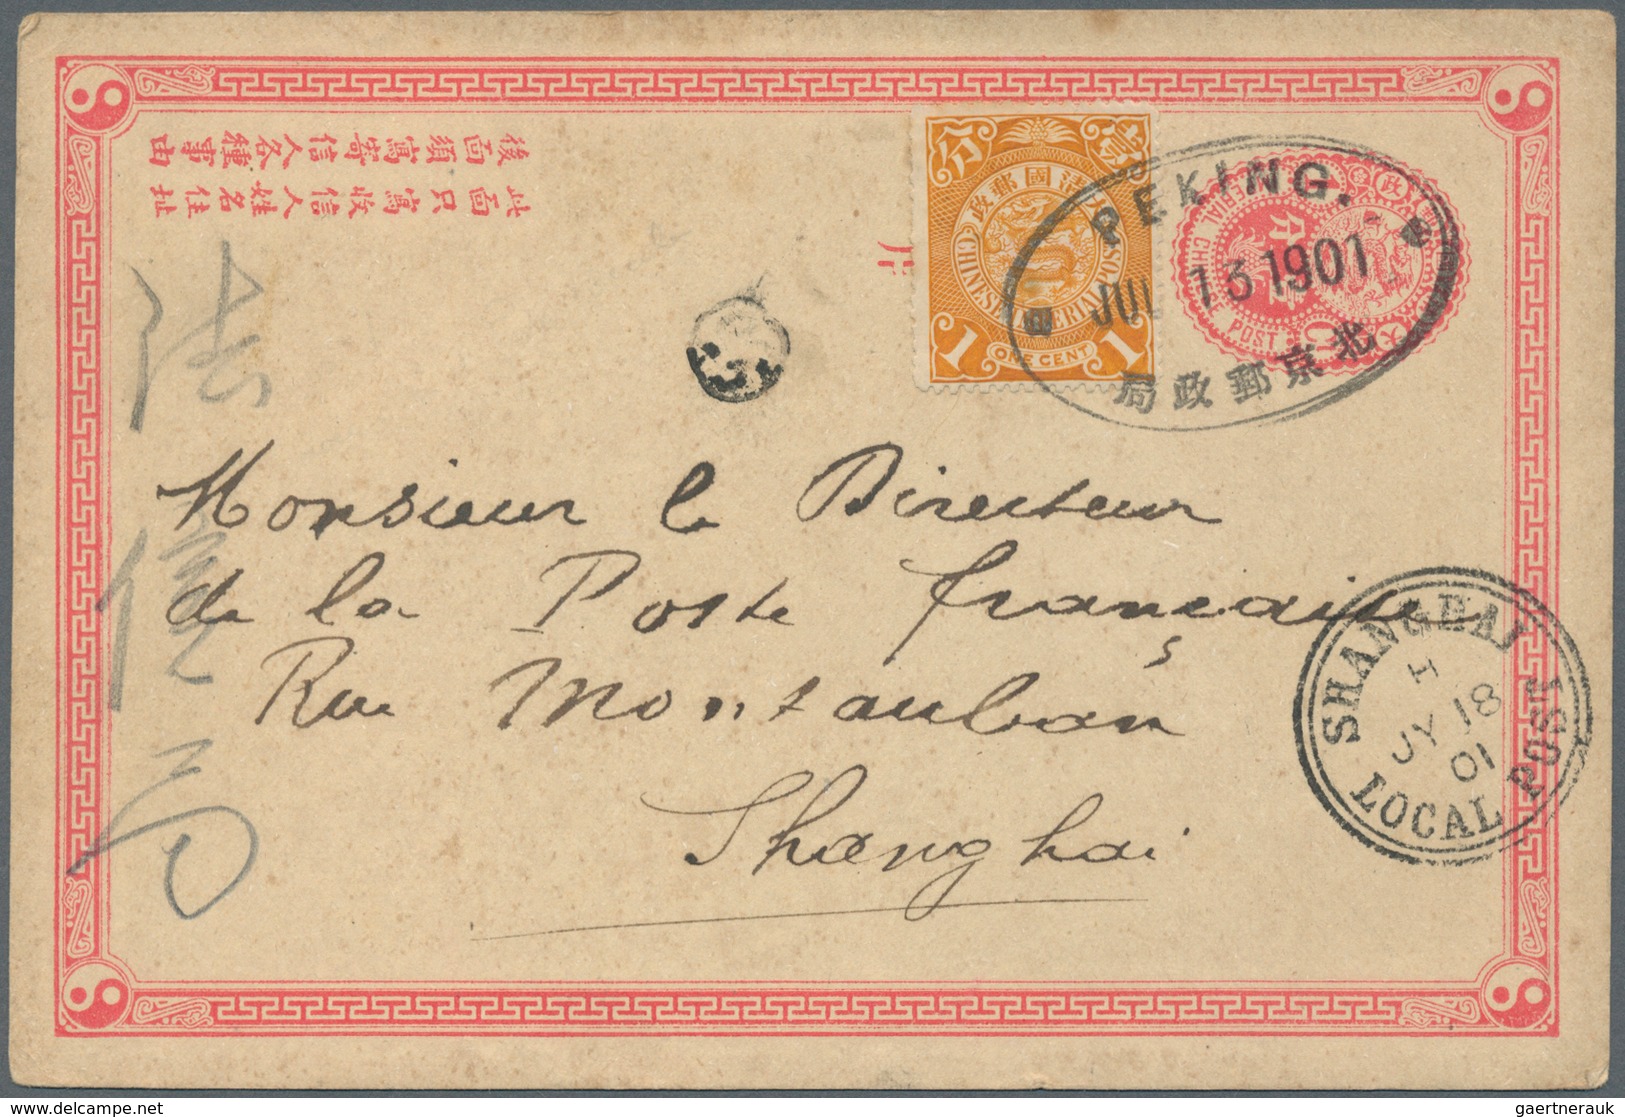 後面須寫寄信人各種事由
此面只寫收信人姓名住址
片
壹 分
大清國郵政
CHINESE IMPERIAL POST
1 ONE CENT 1
PEKING.
JUL 13 1901
北京郵政局
POST
法
信
局
Monsieur le Directeur
de la Poste française
Rue Montauban
Shanghai
SHANGHAI
H
JY 18
01
LOCAL POST
gaertnerauk